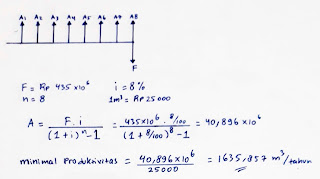 A1 A2 A3 A4 A5 A6 A7 A8
F
F = Rp 435 x10⁶ i = 8%
n = 8 1m³ = Rp 25000
A = F . i / (1+i)ⁿ-1 = 435x10⁶ . 8/100 / (1 + 8/100)⁸ -1 = 40,896 x10⁶
minimal Produktivitas = 40,896 x10⁶ / 25000 = 1635,857 m³/tahun